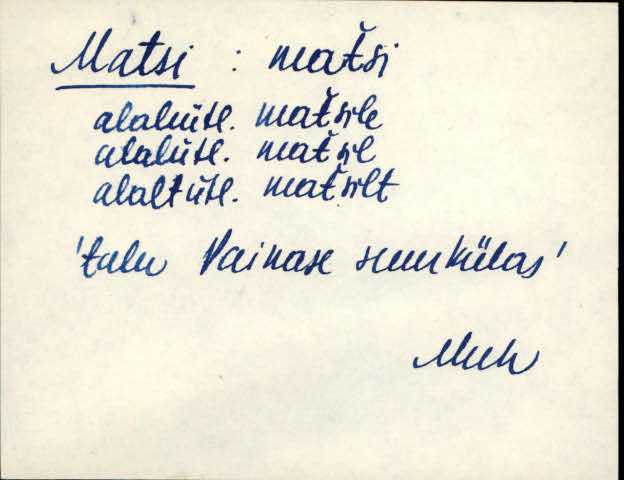 Matsi : matši
alaleütl. matšile
alalütl. matšil
alaltütl. matšilt
'talu Vainase suurkülas'
Muh